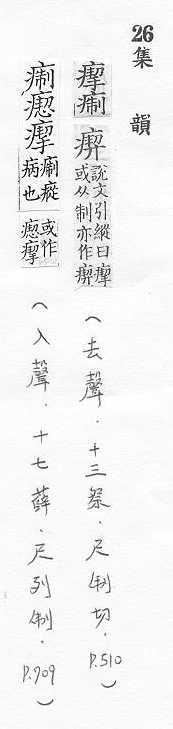 26
集韻
痸
說文引縱曰
或从制亦作
(去聲．十三祭．尺制切．P.510)
痸瘛
痸瘲病也
或作瘛
(入聲．十七薛．尺列制．P.709)